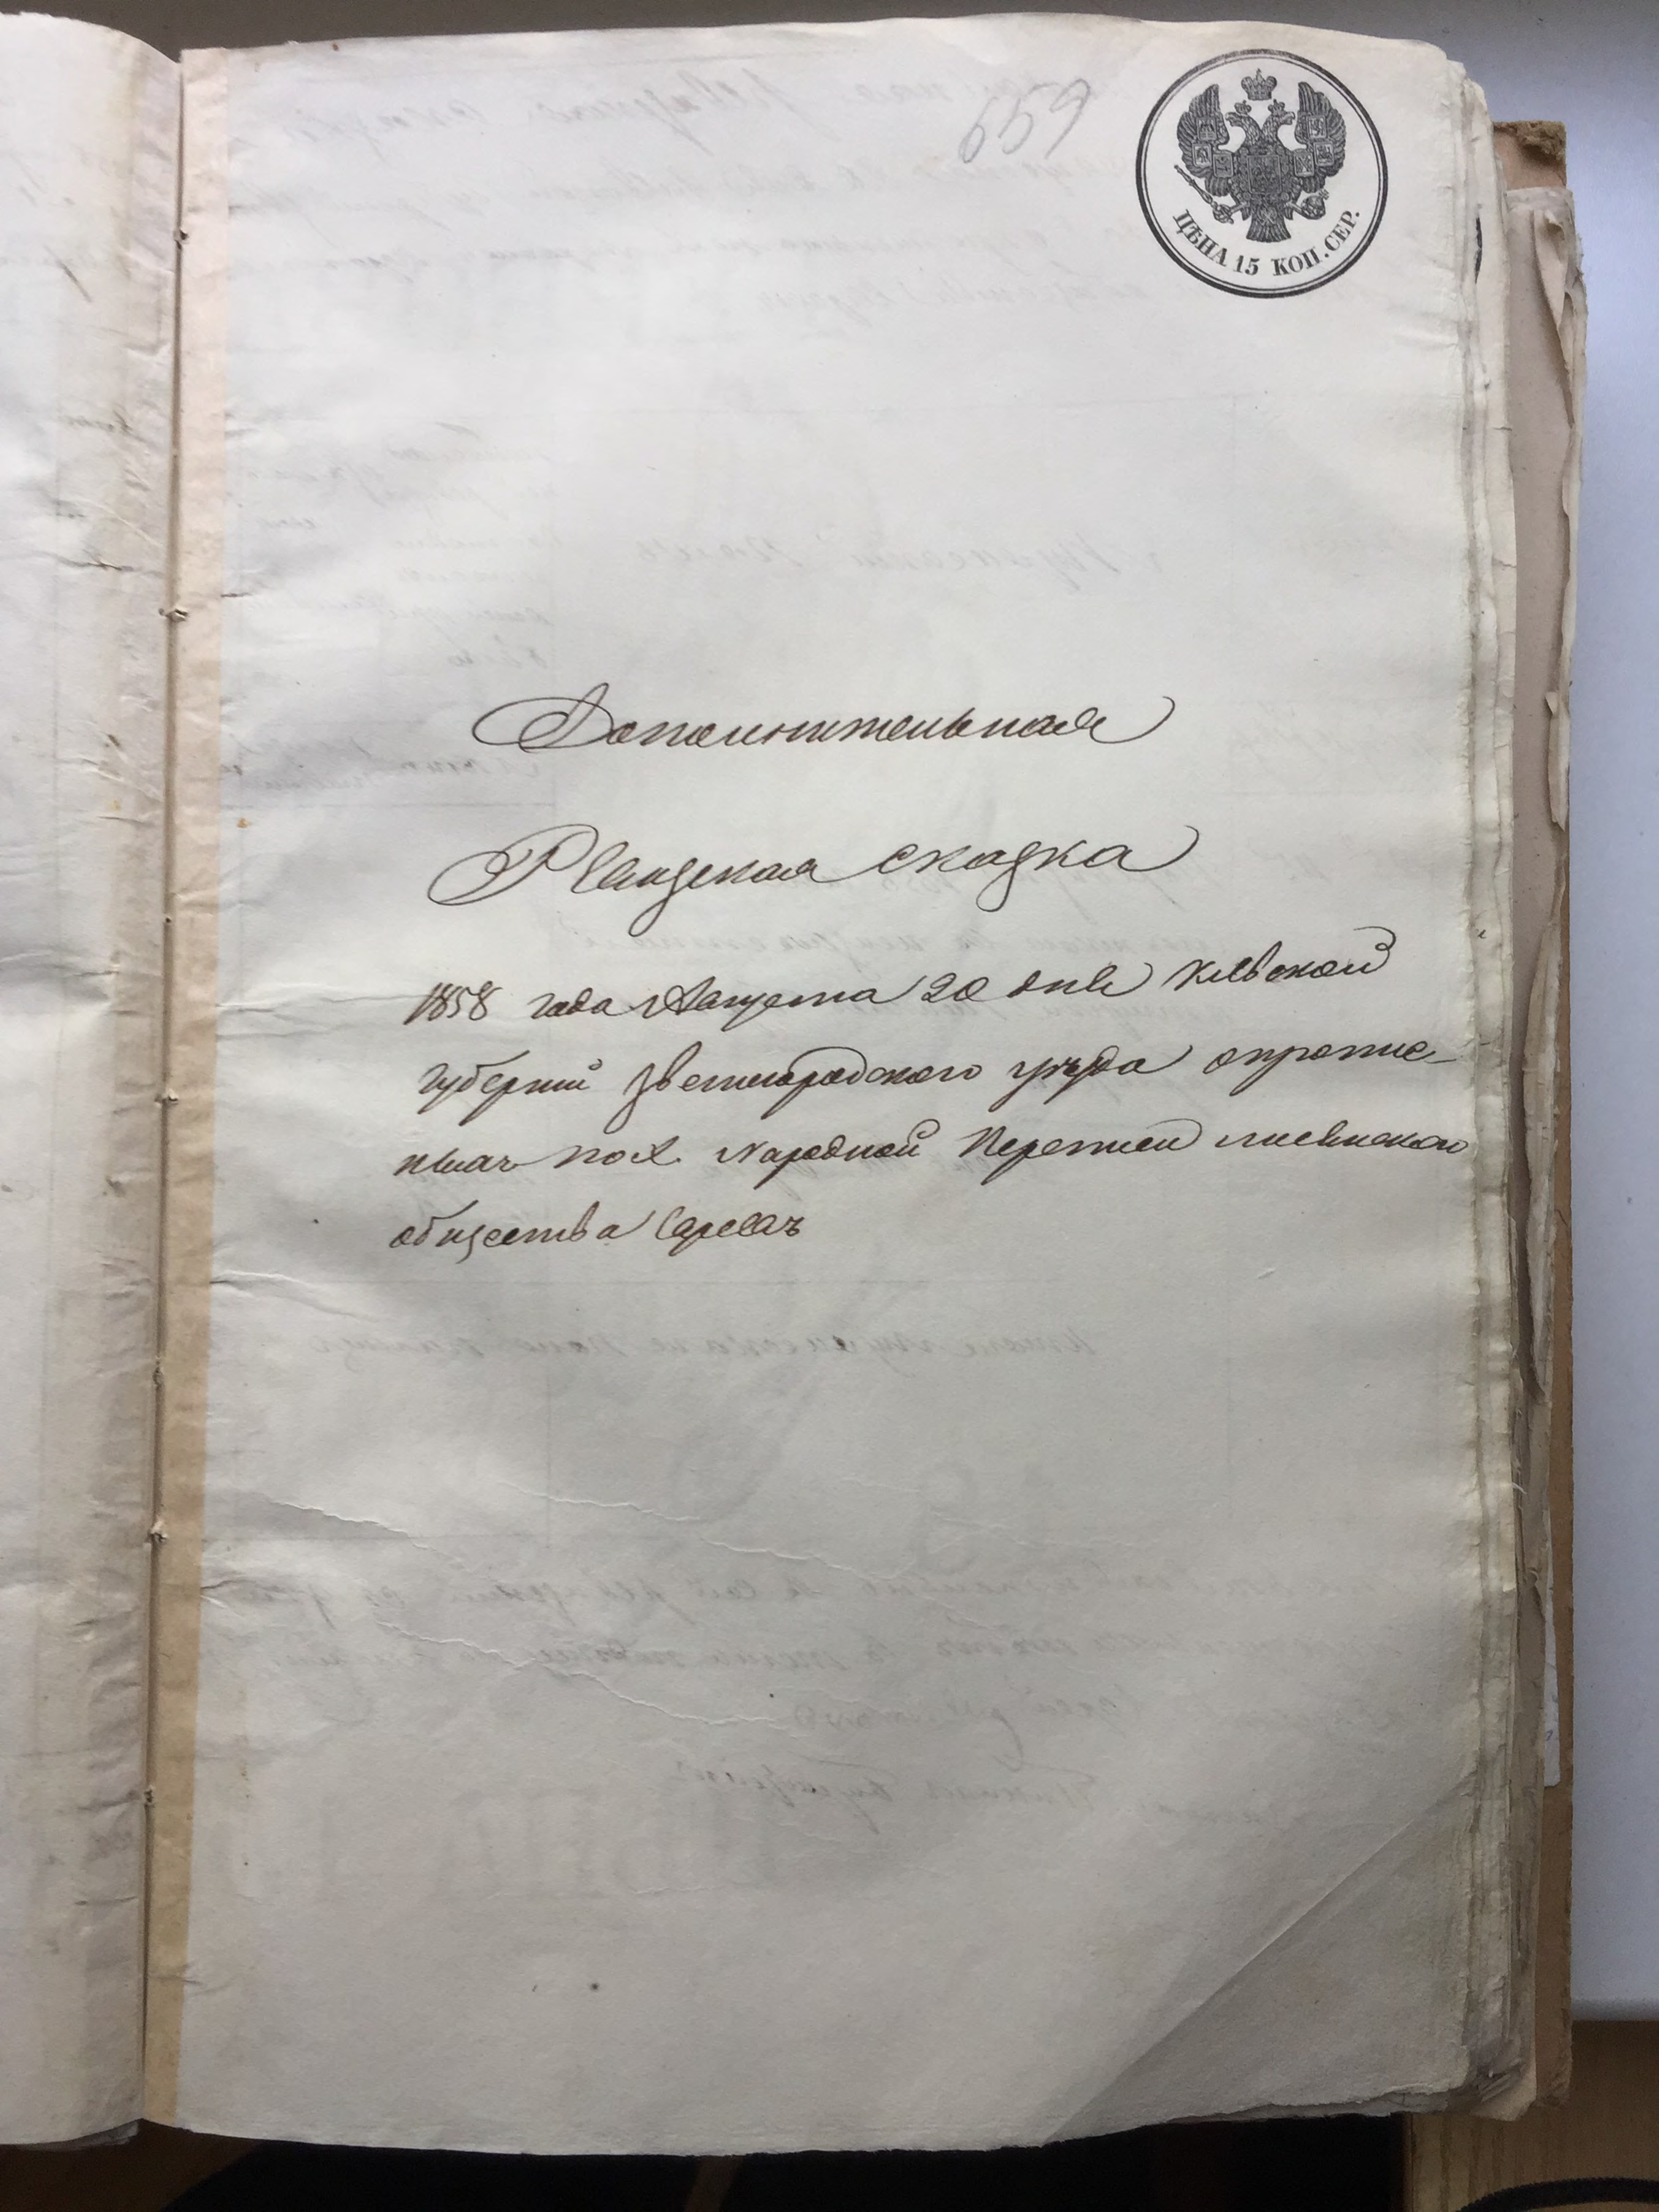 659
ЦѢНА 15 КОП. СЕР.
Дополнительная
Ревизская сказка
1858 года Августа 20 дня Кіевской
Губерніи Звенигородского уѣзда опропис-
ныхъ по Х. Народной Переписи
общества Евреахъ